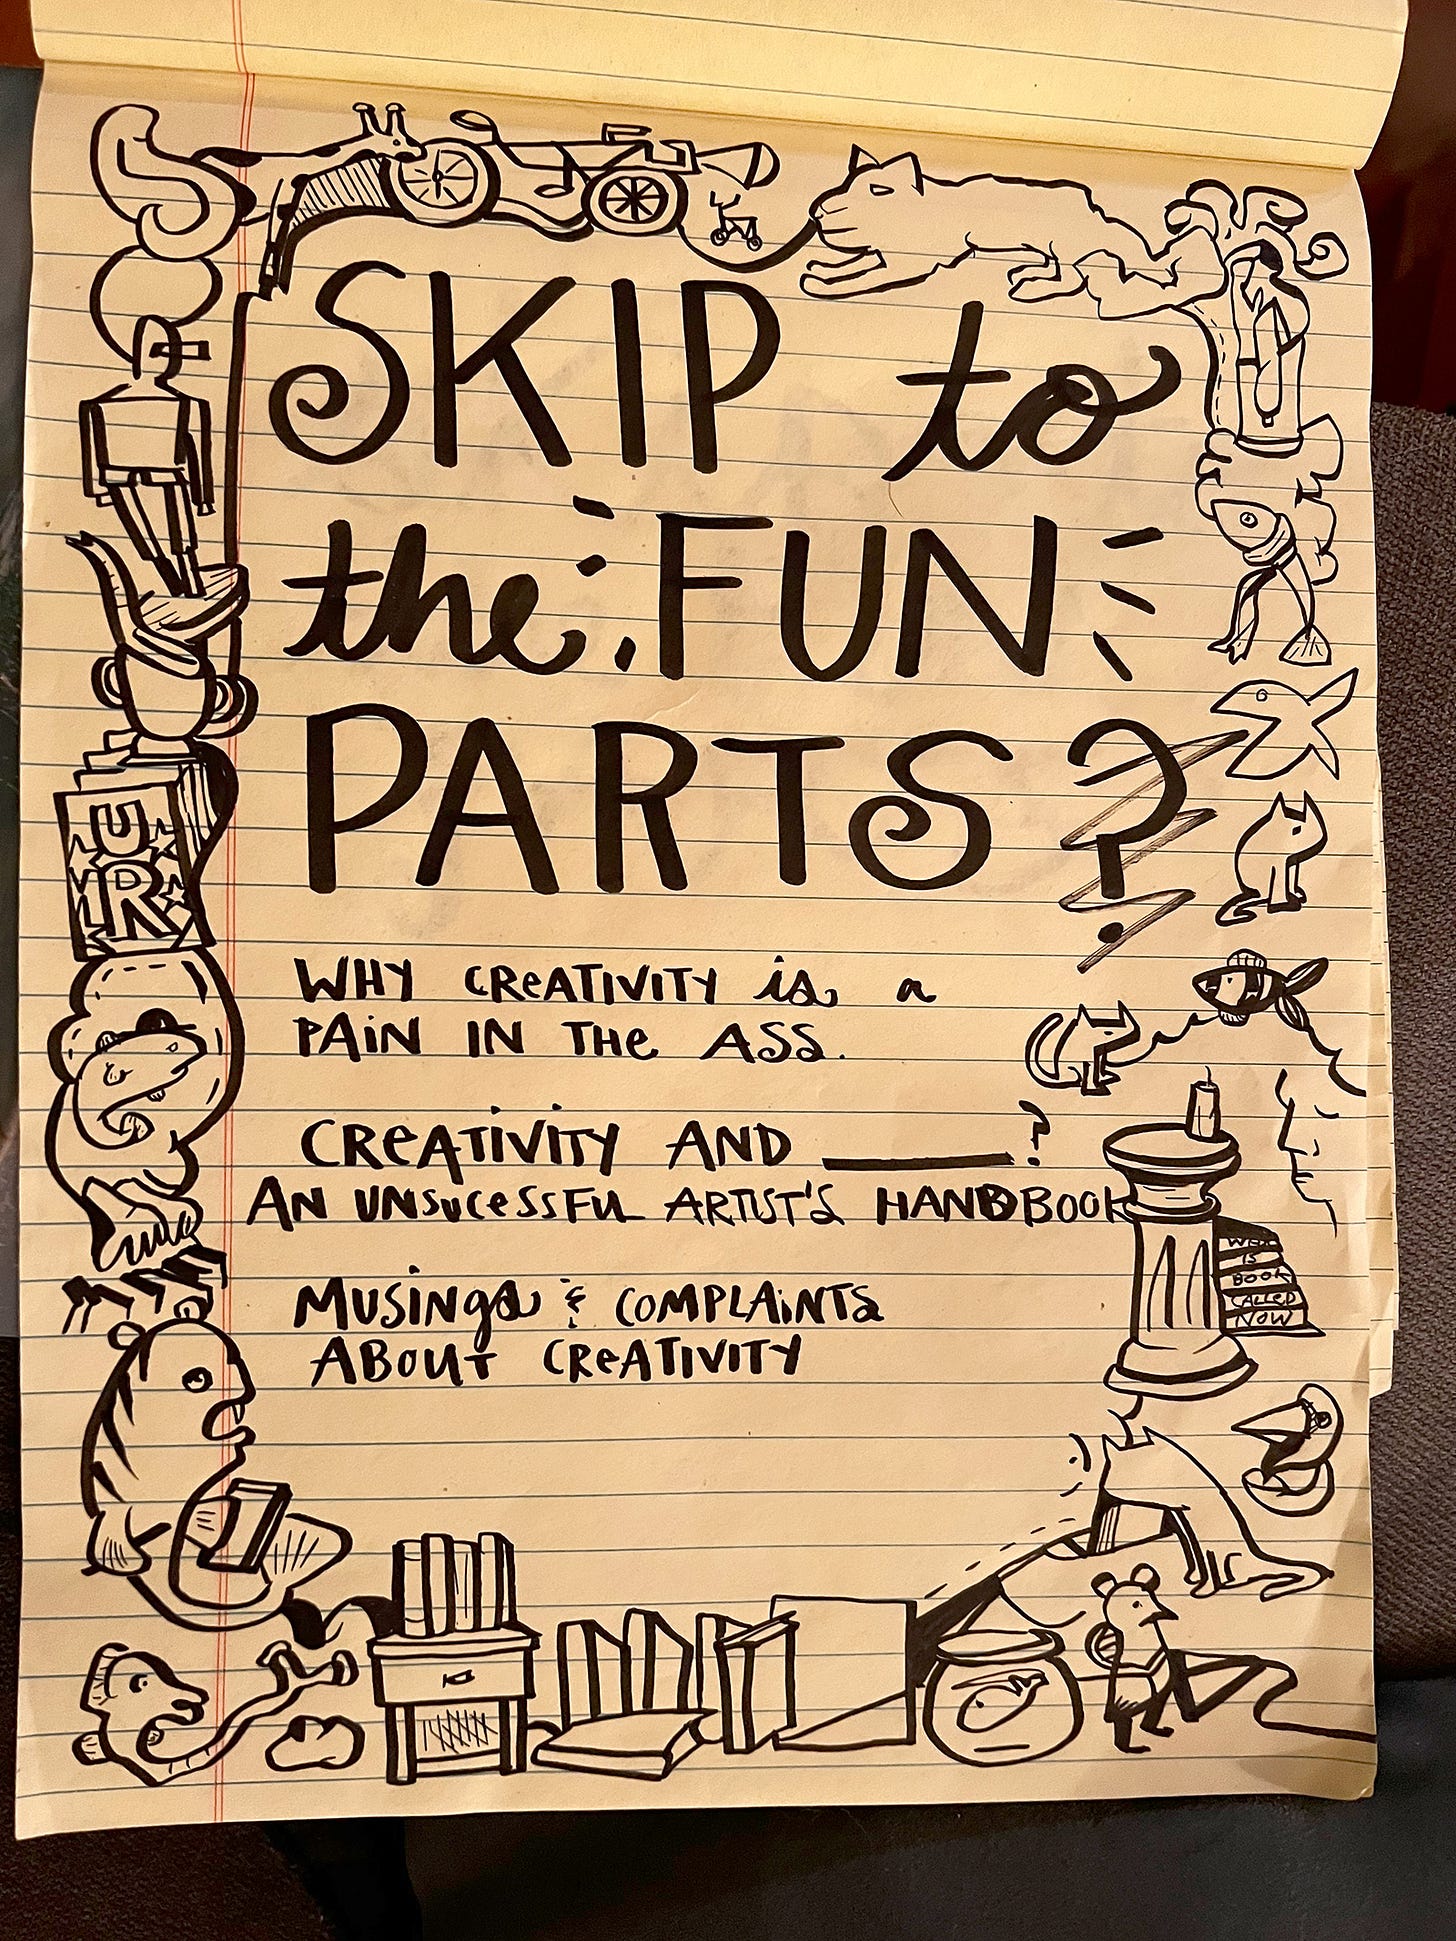 SKIP to
the FUN
PARTS?
WHY CREATIVITY is a
PAIN IN THE ASS.
CREATIVITY AND ______?
AN UNSUCESSFUL ARTIST'S HANDBOOK
MUSINGS & COMPLAINTS
ABOUT CREATIVITY
UR
IS
BOOK
CALLED
NOW